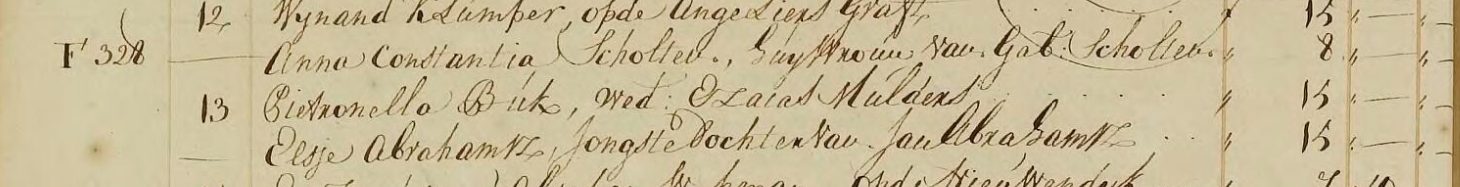 12 Wynand Klumper, opde Angeliers Graft " 15 " — " —
F 328 — Anna Constantia Scholten, huysvrouw van Gab: Scholten " 8 " — " —
13 Pietronella Buk, wed: Ezaias Mulders " 15 " — " —
— Elsje Abrahamsz, Jongste Dochter van Jan Abrahamsz " 15 " — " —
opde Nieuwendyk " 7 10